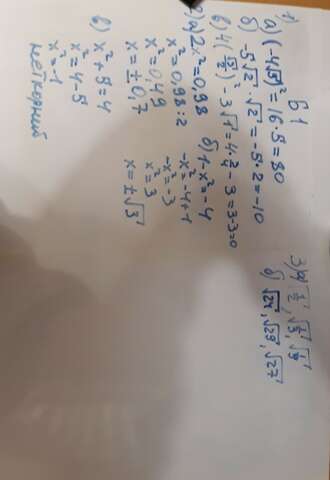 Б 1
1)
а) (-4√5)² = 16·5 = 80
б) -5√2·√2 = -5·2 = -10
в) 4(√3/2)² - 3√1 = 4·3/4 - 3 = 3-3=0
2) а) 2x² = 0,98
x² = 0,98 : 2
x² = 0,49
x = ± 0,7
б) 1-x² = -4
-x² = -4+1
-x² = -3
x² = 3
x = ±√3
в) x² + 5 = 4
x² = 4-5
x² = -1
нет корней
3) а) √1/2, √1/3, √1/9
б) √24, √29, √27